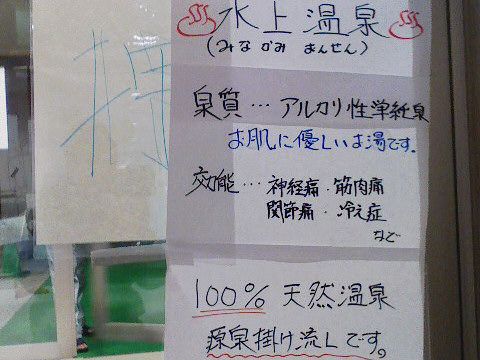 水上温泉
(みなかみ おんせん)
泉質… アルカリ性単純泉
お肌に優しいお湯です。
効能… 神経痛・筋肉痛
関節痛・冷え症
など
100% 天然温泉
源泉掛け流しです。
押